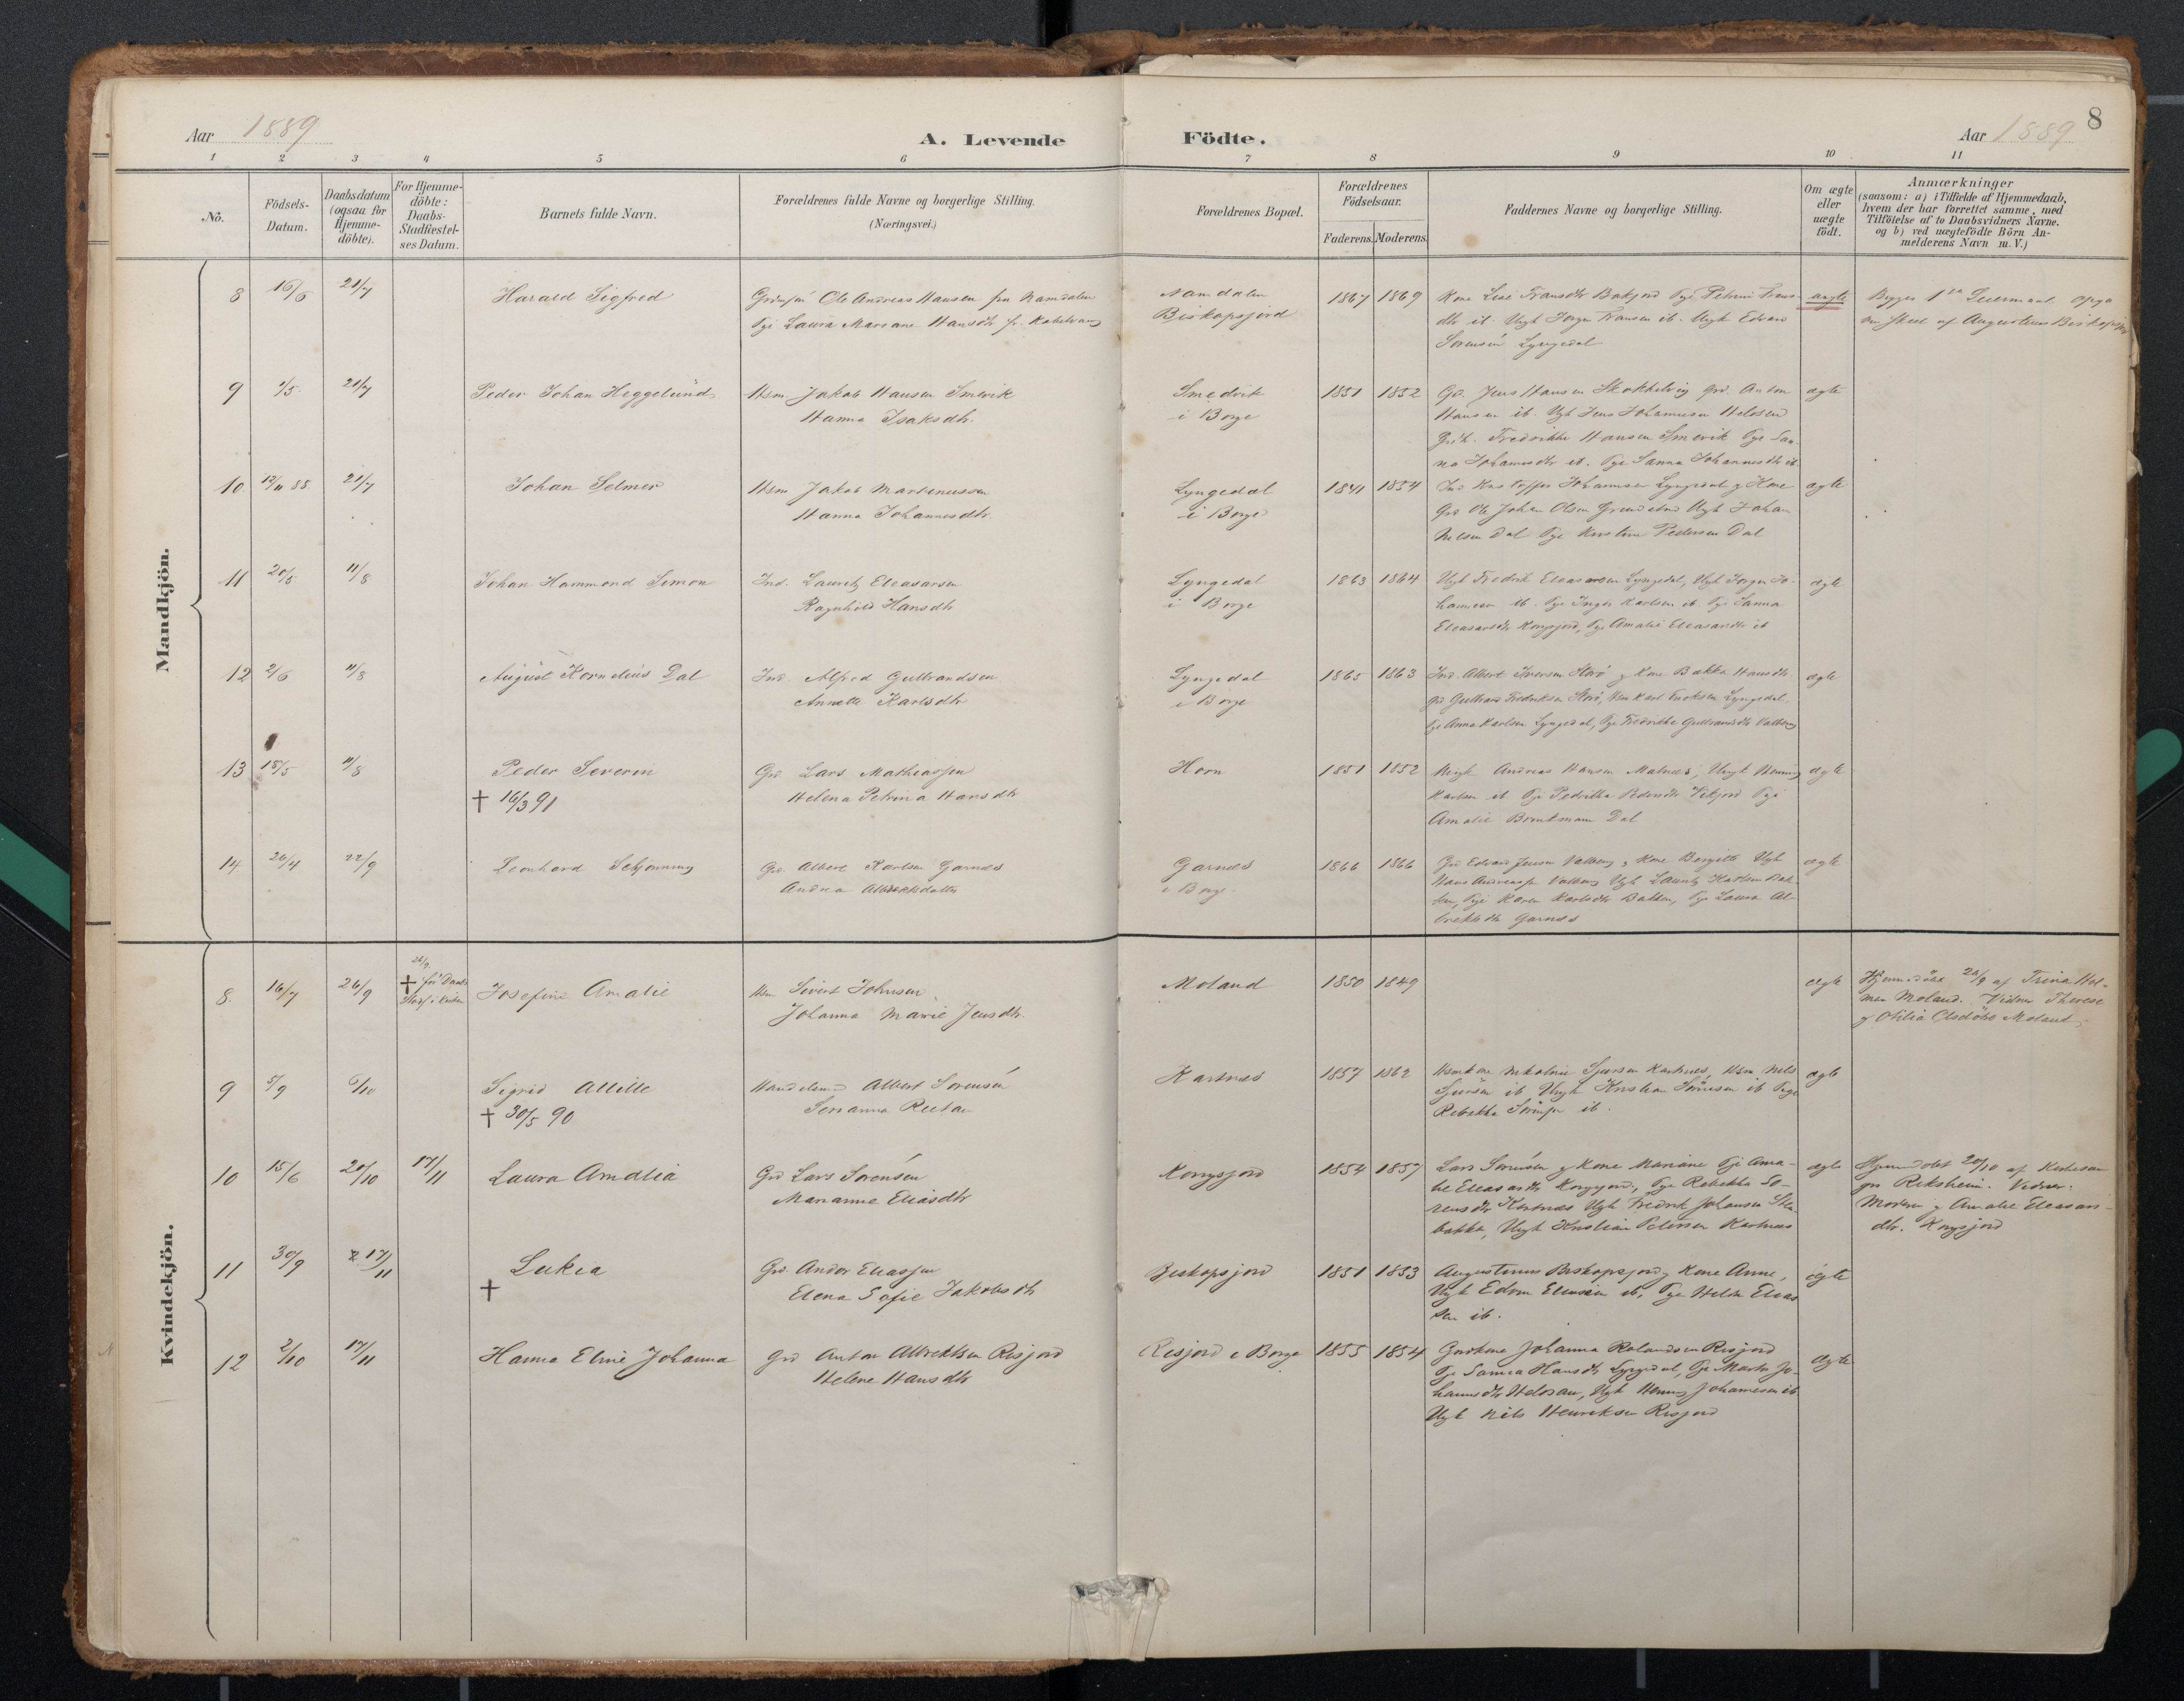 8
Aar 1889
A. Levende Födte.
Aar 1889
1 2 3 4 5 6 7 8 9 10 11
No.
Födsels-Datum.
Daabsdatum (ogsaa for Hjemme-döbte).
For Hjemme-döbte: Daabs-Stadfæstel-ses Datum.
Barnets fulde Navn.
Forældrenes fulde Navne og borgerlige Stilling.
(Næringsvei.)
Forældrenes Bopæl.
Forældrenes Födselsaar.
Faderens. Moderens.
Faddernes Navne og borgerlige Stilling.
Om ægte eller uægte födt.
Anmærkninger
(saasom: a) i Tilfælde af Hjemmedaab,
hvem der har forrettet samme, med
Tilföielse af to Daabsvidners Navne.
og b) ved uægtefödte Börn An-
melderens Navn m. V.)
Mandkjön.
8 16/6 21/7 Harald Sigfred
Ole Andreas Hansen fra Namdalen
Pige Laura Mariane Hansdtr fr.
Namdalen
Biskopsjord
1867 1869
Kone Lise Fransdtr Pige Petrine Frans-
dtr ib. Ungk Jørgen Fransen ib. Ungk Edvard
Sørensen Lyngedal
uægte
Begges 1ste Leiermaal.
af Augustinus
9 21/7 Peder Johan Heggelund
Hsm Jakob Hansen Smevik
Hanna Isaksdtr.
Smedvik
i Borge
1851 1852
Gd. Jens Hansen Anton
Hansen ib. Ugk Jens Johannesen
Fredrikke Hansen Smevik Pge San-
na Johannesdtr ib. Pge Sanna Johannesdtr ib
ægte
10 12/11 88. 21/7 Johan Selmer
Hsm Jakob Martinussen
Hanna Johannesdtr.
Lyngedal
i Borge
1841 1854
Ind Kristoffer Johannesen Lyngedal g Kone
Grd Ole Johan Olsen Ungk Johan
Nilsen Dal Pge Pedersen Dal
ægte
11 20/5 11/8 Johan Hammond Simon
Ind. Lauritz Eleasarsen
Ragnhild Hansdtr
Lyngedal
i Borge
1863 1864
Ugk Fredrik Eleasarsen Lyngedal, Ugk Jørgen Jo-
hannesen ib. Pge Inger Karlsen ib. Pge Sanna
Eleasarsdtr Kongsjord, Pge Amalie Eleasarsdtr ib
ægte
12 2/6 11/8 August Kornelius Dal
Ind. Alfred Gulbrandsen
Annette Karlsdtr
Lyngedal
i Borge
1865 1863
Ind. Albert Iversen g Kone Hansdtr.
Fredriksen Hsm Karl Lyngedal.
Pge Anna Karlsen Lyngedal, Pge Fredrikke Valberg
ægte
13 18/5 11/8 Peder Severin
† 16/3 91
Grd. Lars Mathiassen
Helena Petrina Hansdtr
Horn
1851 1852
Ungk Andreas Hansen Malnes, Ungk Henning
Karlsen ib. Pge Pedersdtr Vikjord Pge
Amalie Brentmann Dal
ægte
14 26/4 22/9 Leonhard Schjønning
Grd. Albert Karlsen Garnes
Andrea Albrektsdatter
Garnes
i Borge.
1866 1866
Grd Edvard Jensen Valberg g Kone Bergitte Ugk
Hans Andreassen Valberg Ugk Lauritz Karlsen Bak-
ken, Pige Karen Karlsdtr Bakken, Pge Laura Al-
brektsdtr Garnes
ægte
Kvindekjön.
8. 16/7 26/9
26/9.
† før Daab
Stadf. i Kirken
Josefine Amalie
Hsm Sivert Johnsen
Johanna Marie Jensdtr.
Moland
1850 1849
ægte
Hjemmedøbt af Trina Hol-
men Moland. Vidner Therese
g Otilia Moland.
9 5/9 6/10 Sigrid Allette
† 30/5 90
Handelsmd Albert Sørensen
Serianna
Kartnes
1857 1862
Hsmkone Nikoline Sjursen Kartnes, Hsm Nils
Sjursen ib Ungk Kristian Sørensen ib Pige
Rebekka ib.
ægte
10 15/6 20/10 17/11 Laura Amalia
Grd Lars Sørensen
Marianne Eliasdtr
Kongsjord
1854 1857
Lars Sørensen g Kone Mariane Pge Ama-
lie Eleasarsdtr Kongsjord, Pge Rebekka Sø-
rensdtr Kartnes Ugk Fredrik Johansen
bakke, Ungk Kristian Pedersen Kartnes
ægte
Hjemmedøbt 20/10 af Kirkesan-
ger Riksheim. Vidner:
Moderen g Amalie Eleasars-
dtr. Kongsjord
11 30/9 17/11 Lukia
†
Grd. Andor Eliassen
Elena Sofie Jakobsdtr
Biskopsjord
1851 1853
Augustinus Biskopsjord g Kone Anne,
Ungk Edvin Eliassen ib, Pge Elias
sen ib.
ægte
12 2/10 17/11 Hanna Eline Johanna
Grd Anton Albrektsen Risjord
Helene Hansdtr
Risjord i Borge
1855 1854
Gaardkone Johanna Rolandsen Risjord
Pge Sanna Hansdtr Lyngedal, Pge Marta Jo-
hannesdtr Ugk Henning Johannesen ib
Ugk Nils Henriksen Risjord
ægte